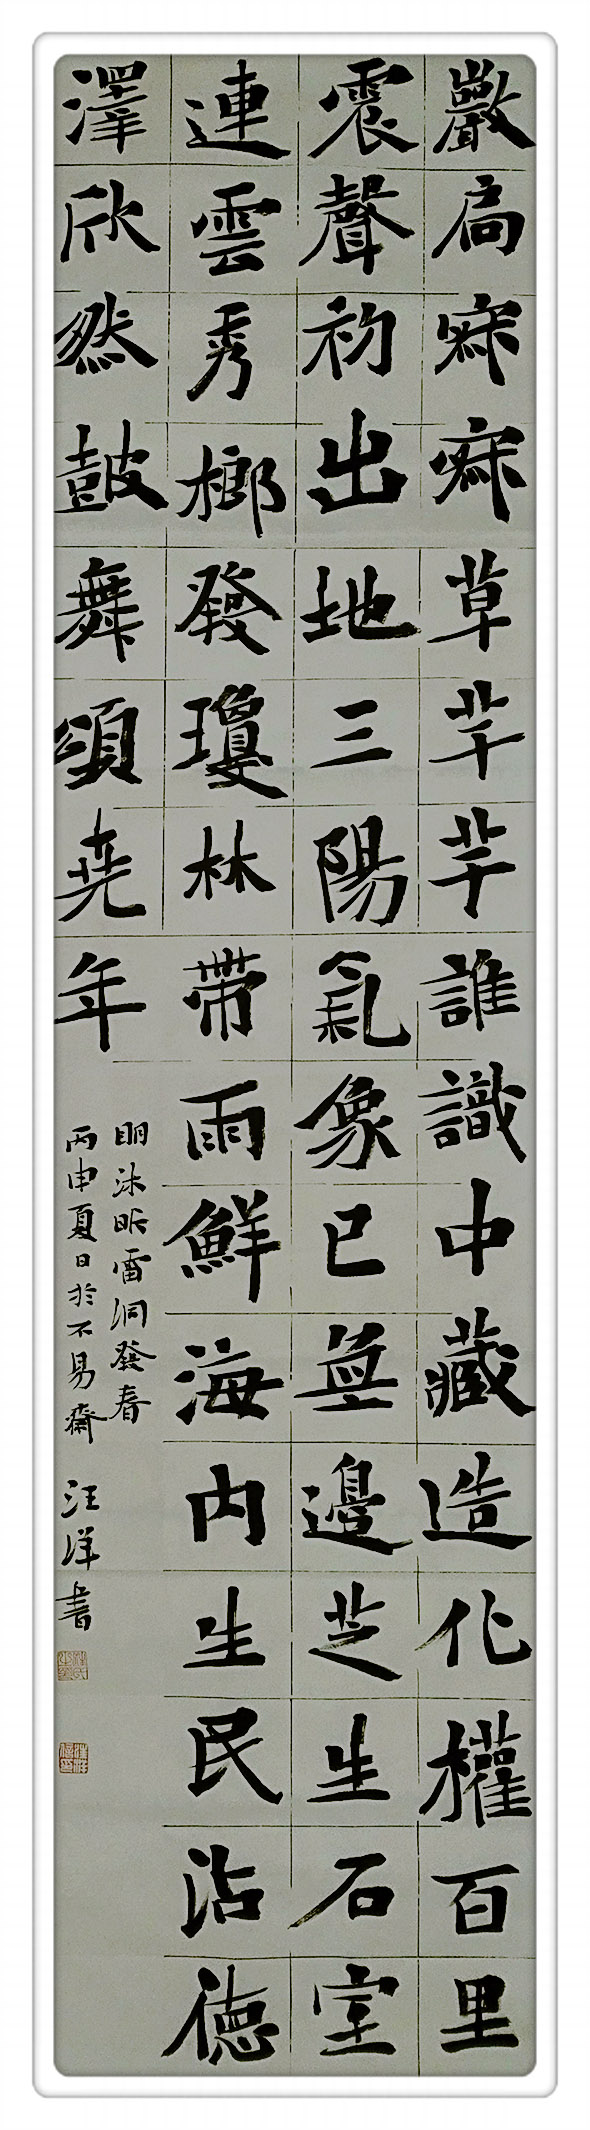 嚴扃寂寂草芊芊誰識中藏造化權百里
震聲初出地三陽氣象已無邊芝生石室
連雲秀榔發瓊林帶雨鮮海內生民沾德
澤欣然鼓舞頌堯年
明沐昕雷洞發春
丙申夏日於不易齋 汪洋書